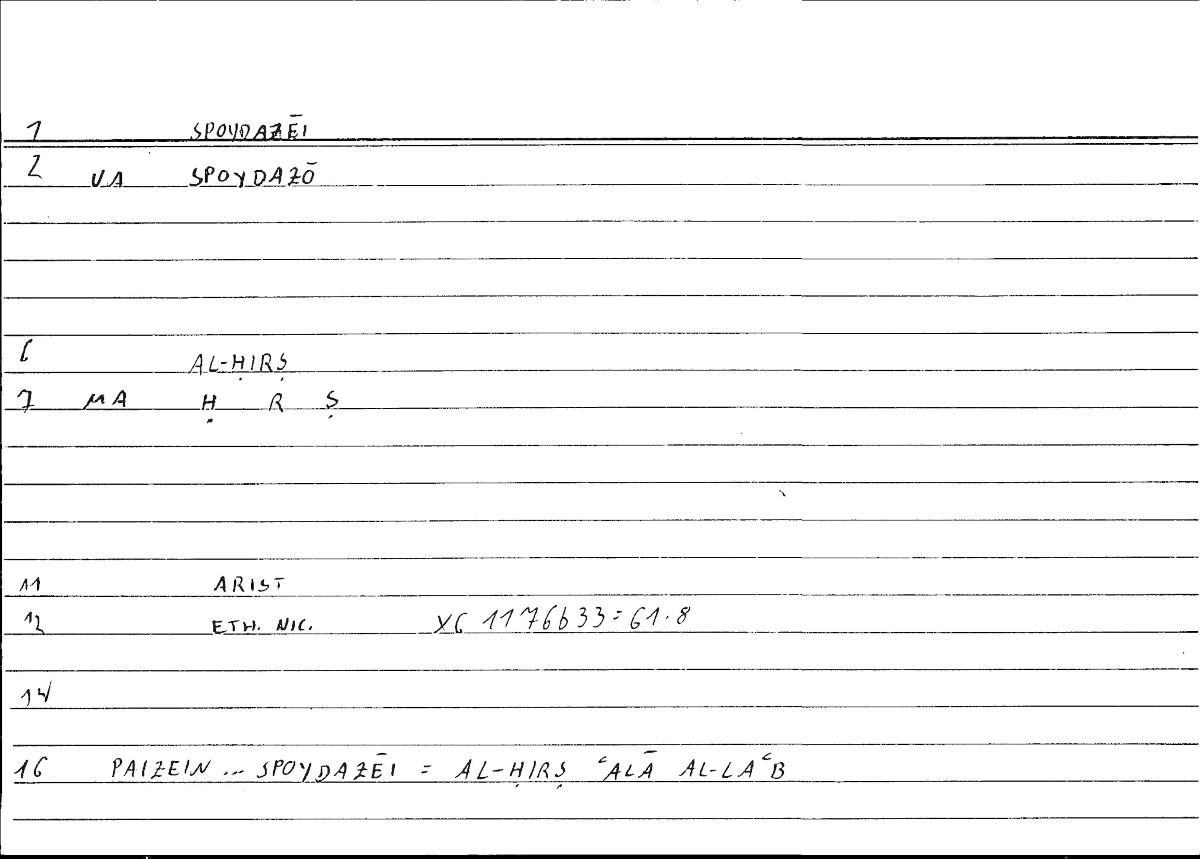 1 SPOYDAZĒI
2 VA SPOYDAZŌ
6 AL-ḤIRṢ
7 MA Ḥ R Ṣ
11 ARIST
12 ETH. NIC. X6 1176b33=61.8
14
16 PAIZEIN ... SPOYDAZĒI = AL-ḤIRṢ ʿALĀ AL-LAʿB